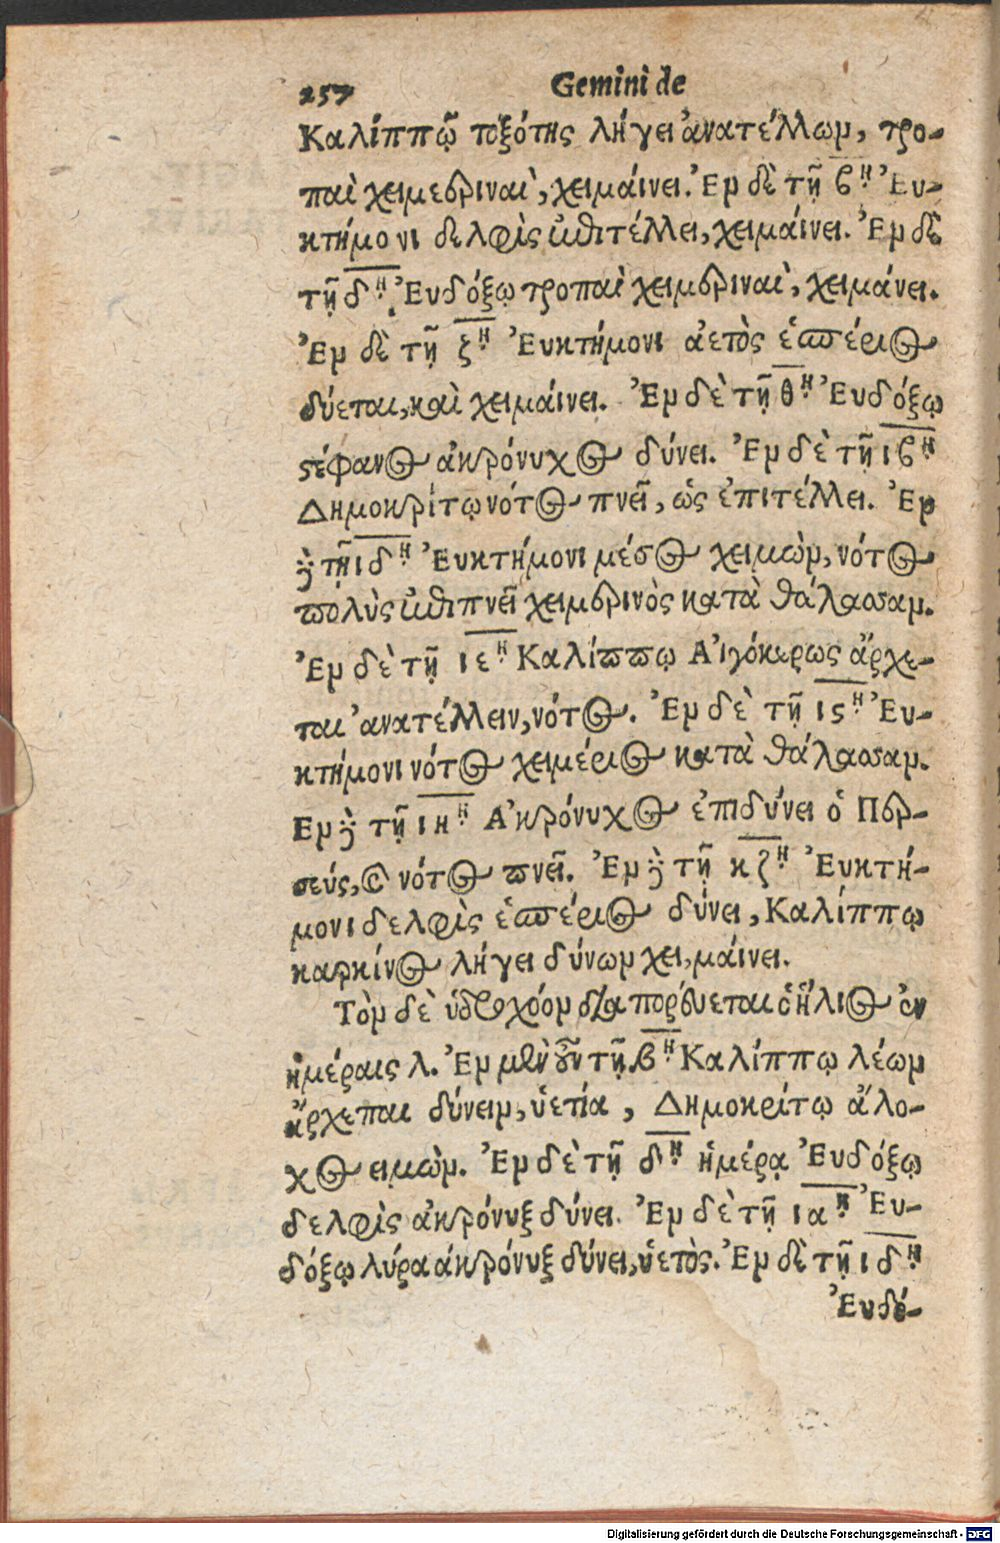 257 Gemini de
Καλίππῳ τοξότης λήγει ἀνατέλλων, τρο-
παὶ χειμεριναὶ, χειμαίνει. Ἐν δὲ τῇ βῃ Ἐυ-
κτήμονι δελφὶς ἐπιτέλλει, χειμαίνει. Ἐν δὲ
τῇ δῃ. Ἐυδόξῳ τροπαὶ χειμεριναὶ, χειμάνει.
Ἐν δὲ τῇ ζῃ Ἐυκτήμονι ἀετὸς ἑσπέριος
δύεται, καὶ χειμαίνει. Ἐν δὲ τῇ θῃ Ἐυδόξῳ
στέφανος ἀκρόνυχος δύνει. Ἐν δὲ τῇ ιβῃ
Δημοκρίτῳ νότος πνεῖ, ὡς ἐπιτέλλει. Ἐν
δὲ τῇ ιδῃ Ἐυκτήμονι μέσος χειμὼν, νότος
πολὺς ἐπιπνεῖ χειμερινὸς κατὰ θάλασσαν.
Ἐν δὲ τῇ ιεῃ Καλίππῳ Αἰγόκερως ἄρχε-
ται ἀνατέλλειν, νότος. Ἐν δὲ τῇ ιςῃ Ἐυ-
κτήμονι νότος χειμέριος κατὰ θάλασσαν.
Εν δὲ τῇ ιηῃ Ἀκρόνυχος ἐπιδύνει ὁ Περ-
σεύς, καὶ νότος πνεῖ. Ἐν δὲ τῇ κζῃ Ἐυκτή-
μονι δελφὶς ἑσπέριος δύνει, Καλίππῳ
καρκίνος λήγει δύνων χει,μαίνει.
Τὸν δὲ ὑδροχόον διαπορέυεται ὁ ἥλιος ἐν
ἡμέραις λ. Ἐν μὲν οὖν τῇ. βῃ Καλίππῳ λέων
ἄρχεται δύνειν, ὑετία, Δημοκρίτῳ ἄλο-
χος ειμὼν. Ἐν δὲ τῇ δῃ ἡμέρᾳ Ἐυδόξῳ
δελφὶς ἀκρόνυξ δύνει. Ἐν δὲ τῇ ιαῃ Ἐυ-
δόξῳ λύρα ἀκρόνυξ δύνει, ὑετὸς. Ἐν δὲ τῇ ιδῃ
Ἐυδό-
Digitalisierung gefördert durch die Deutsche Forschungsgemeinschaft - DFG